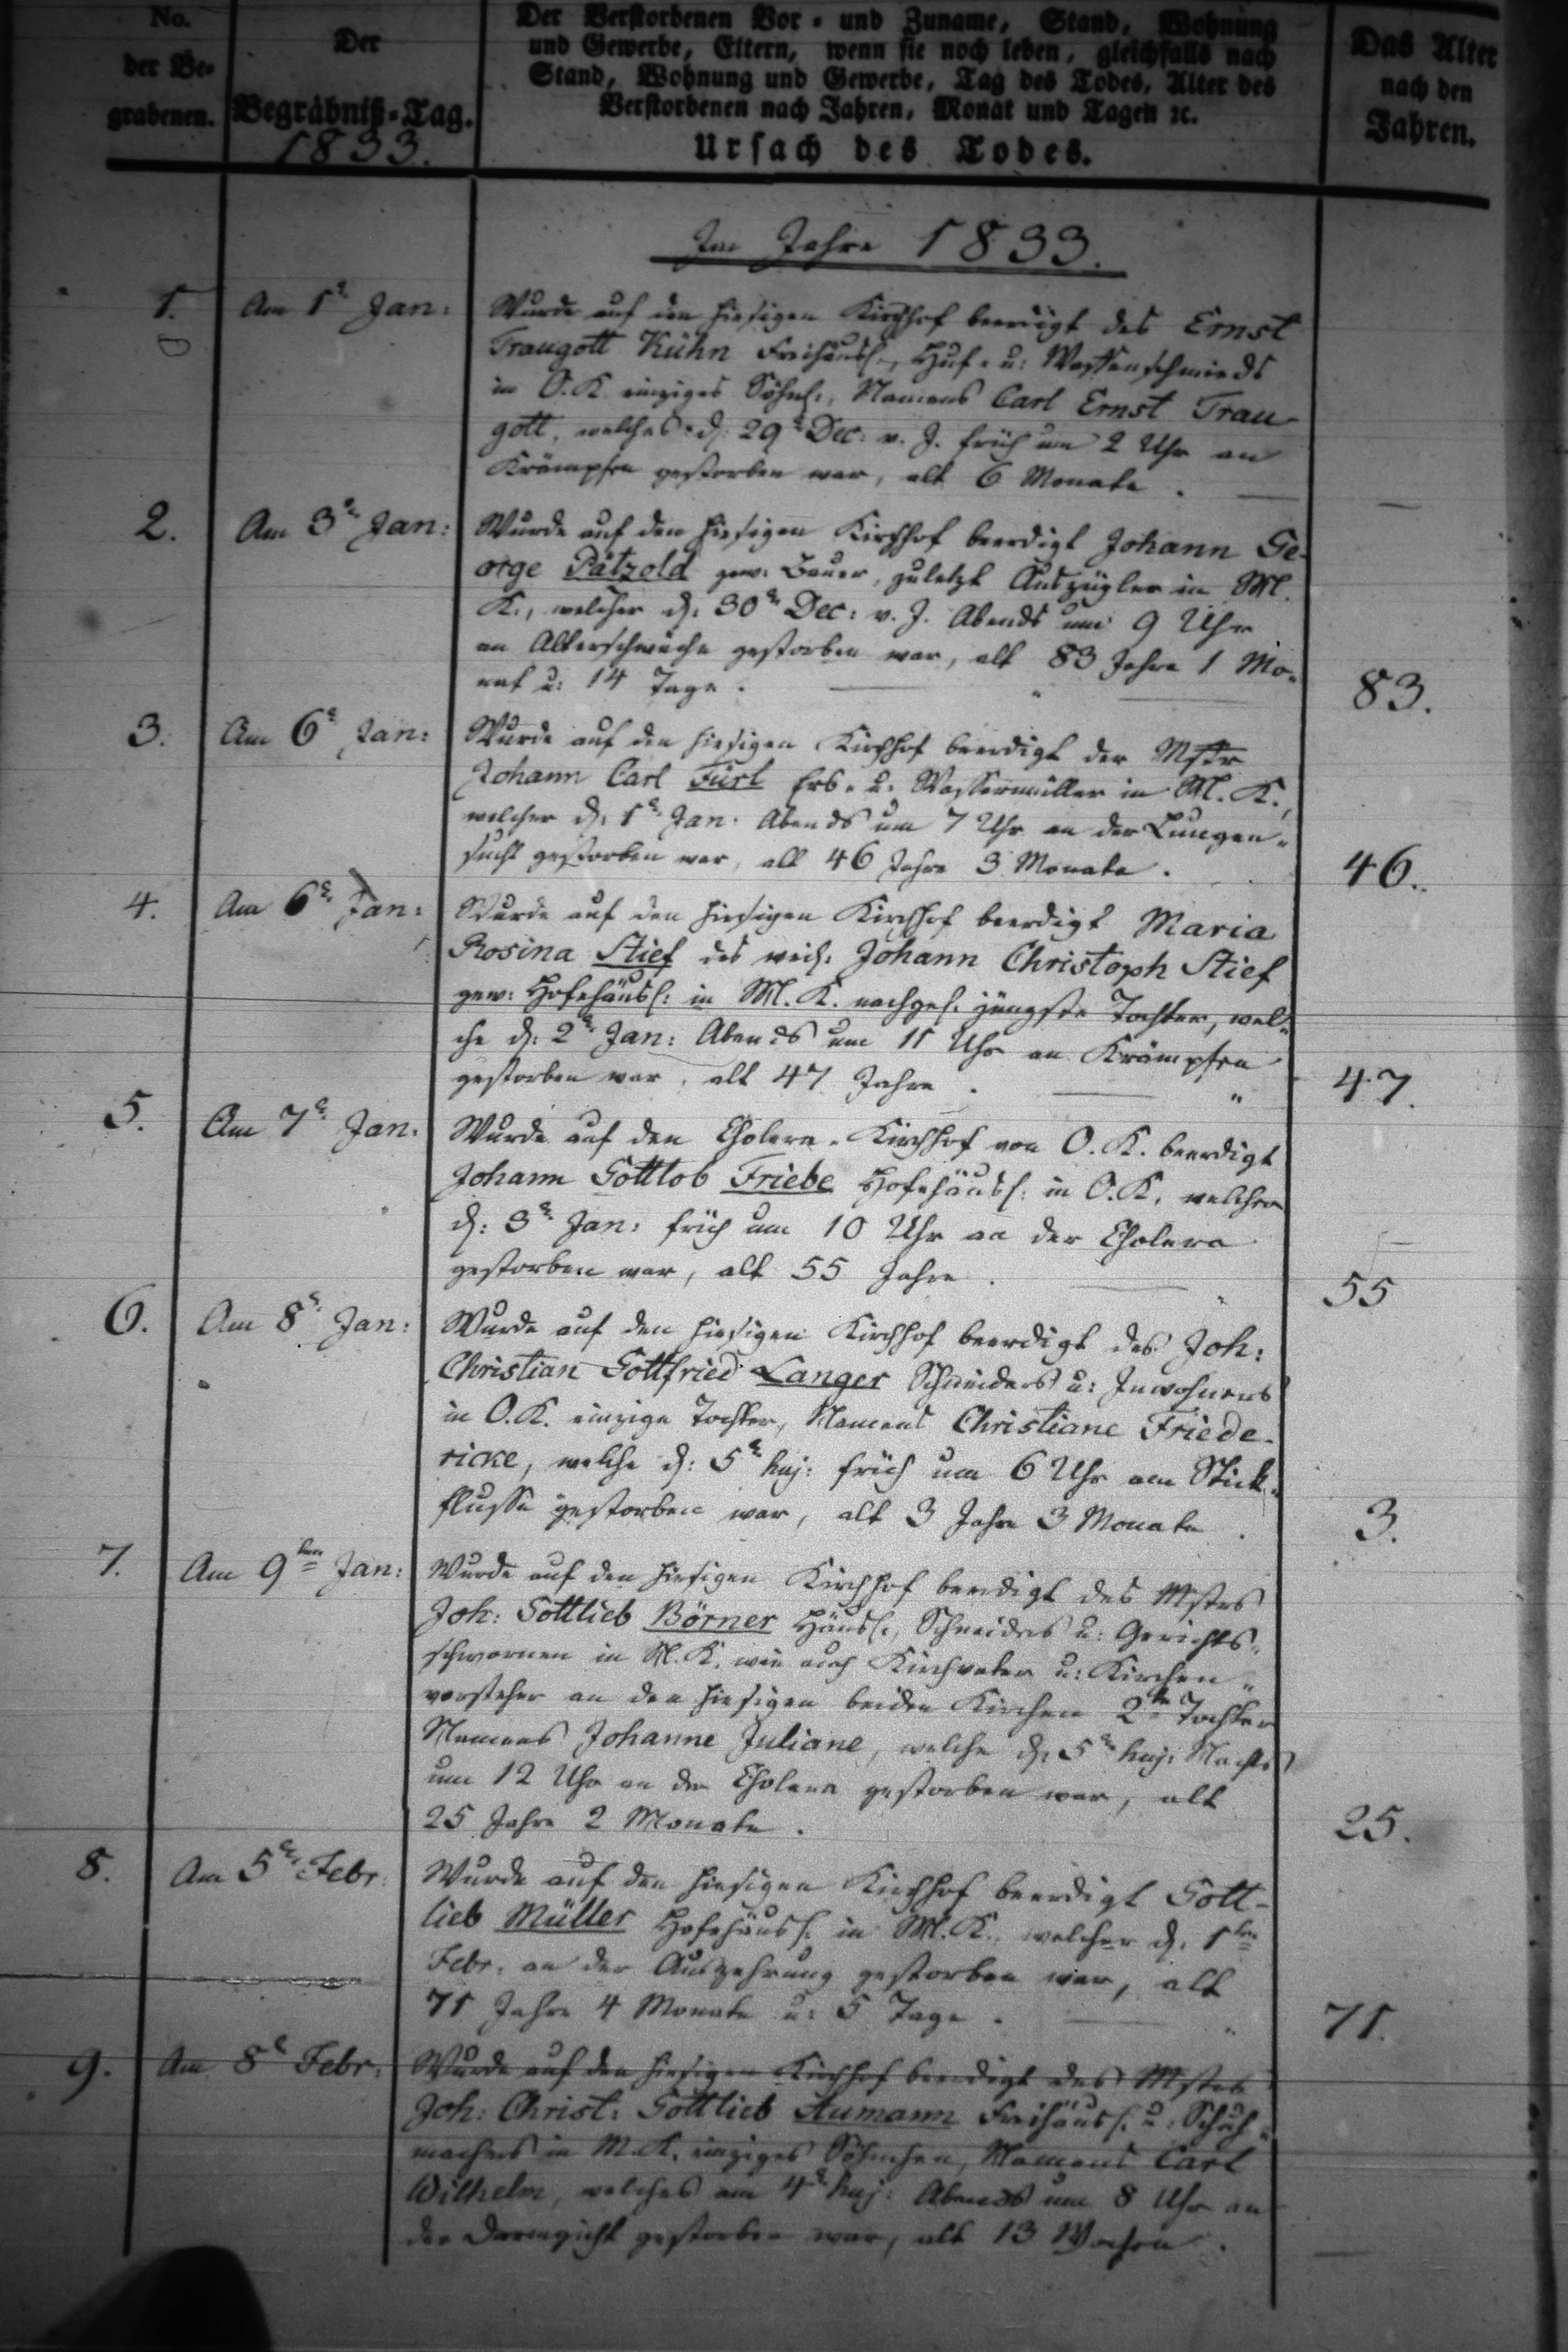 No.
der Be-
grabenen.
Der
Begräbniß-Tag.
1833.
Der Verstorbenen Vor- und Zuname, Stand, Wohnung
und Gewerbe, Eltern, wenn sie noch leben, gleichfalls nach
Stand, Wohnung und Gewerbe, Tag des Todes, Alter des
Verstorbenen nach Jahren, Monat und Tagen ꝛc.
Ursach des Todes.
Das Alter
nach den
Jahren.
Im Jahre 1833.
1. Am 1t Jan: Wurde auf den hiesigen Kirchhof beerdigt des Ernst
Traugott Kühn Freihäusl., Huf- u: Waffenschmieds
in O. K. einziges Söhnl., Namens Carl Ernst Trau-
gott, welches d. 29t Dec: v. J. früh um 2 Uhr an
Krämpfen gestorben war, alt 6 Monate. —
2. Am 3t Jan: Wurde auf den hiesigen Kirchhof beerdigt Johann Ge-
orge Pätzold gew: Bauer, zuletzt Auszügler in M.
K., welcher d: 30t Dec: v. J. Abends um 9 Uhr
an Altersschwäche gestorben war, alt 83 Jahre 1 Mo-
nat u: 14 Tage. 83.
3. Am 6t Jan: Wurde auf den hiesigen Kirchhof beerdigt der Mstr
Johann Carl Fürl Erb- u: Wassermüller in M. K.,
welcher d: 1t Jan: Abends um 7 Uhr an der Lungen-
sucht gestorben war, alt 46 Jahre 3 Monate. 46.
4. Am 6t Jan: Wurde auf den hiesigen Kirchhof beerdigt Maria
Rosina Stief des weil. Johann Christoph Stief
gew: Hofehäusl: in M. K. nachgel. jüngste Tochter, wel-
che d: 2t Jan: Abends um 11 Uhr an Krämpfen
gestorben war, alt 47 Jahre. 47.
5. Am 7t Jan: Wurde auf den Cholera-Kirchhof von O. K. beerdigt
Johann Gottlob Friebe Hofehäusl: in O. K. welcher
d: 3t Jan: früh um 10 Uhr an der Cholera
gestorben war, alt 55 Jahre. 55
6. Am 8t Jan: Wurde auf den hiesigen Kirchhof beerdigt des Joh:
Christian Gottfried Langer Schneiders u: Inwohners
in O. K. einzige Tochter, Namens Christiane Friede-
ricke, welche d: 5t huj: früh um 6 Uhr am Stick-
flusse gestorben war, alt 3 Jahre 3 Monate. 3.
7. Am 9ten Jan: Wurde auf den hiesigen Kirchhof beerdigt des Mstrs
Joh: Gottlieb Börner Häusl., Schneiders u: Gerichts-
schwornen in M. K. wie auch Kirchvater u: Kirchen-
vorsteher an den hiesigen beiden Kirchen 2te Tochter
Namens Johanne Juliane, welche d: 5t huj: Nachts
um 12 Uhr an der Cholera gestorben war, alt
25 Jahre 2 Monate. 25.
8. Am 5t Febr: Wurde auf den hiesigen Kirchhof beerdigt Gott-
lieb Müller Hofehäusl. in M. K., welcher d. 1ten
Febr. an der Auszehrung gestorben war, alt
71 Jahre 4 Monate u: 5 Tage. 71.
9. Am 8t Febr: Wurde auf den hiesigen Kirchhof beerdigt des Mstrs
Joh: Christ: Gottlieb Aumann Freihäusl. u: Schuh-
machers in M. K. einziges Söhnchen, Namens Carl
Wilhelm, welches am 4t huj: Abends um 8 Uhr an
der Darmgicht gestorben war, alt 13 Wochen. —